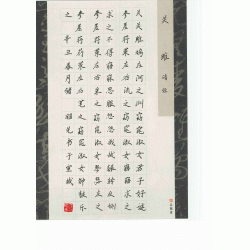 关雎
诗经
关关雎鸠在河之洲窈窕淑女君子好逑
参差荇菜左右流之窈窕淑女寤寐求之
求之不得寤寐思服悠哉悠哉辗转反侧
参差荇菜左右采之窈窕淑女琴瑟友之
参差荇菜左右芼之窈窕淑女钟鼓乐
之辛丑春月